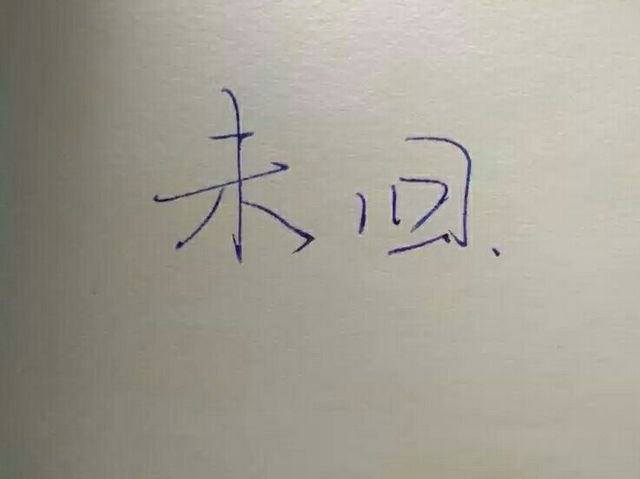 未回.